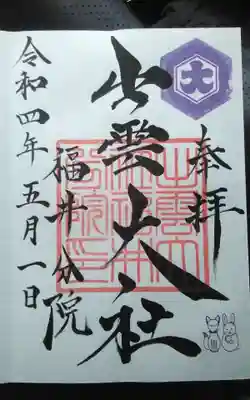 奉拝
出雲大社
福井分院
令和四年五月一日
大